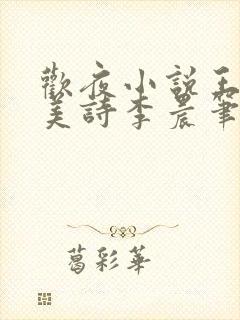 歡夜小說王
美詩李晨筆
葛彩華